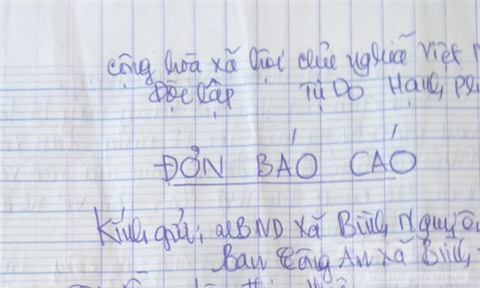 cộng hòa xã hội chủ nghĩa việt
Độc lập Tự Do Hạnh
ĐƠN BÁO CÁO
Kính gửi; UBND xã Bình Nguyên
Ban Công An xã Bình